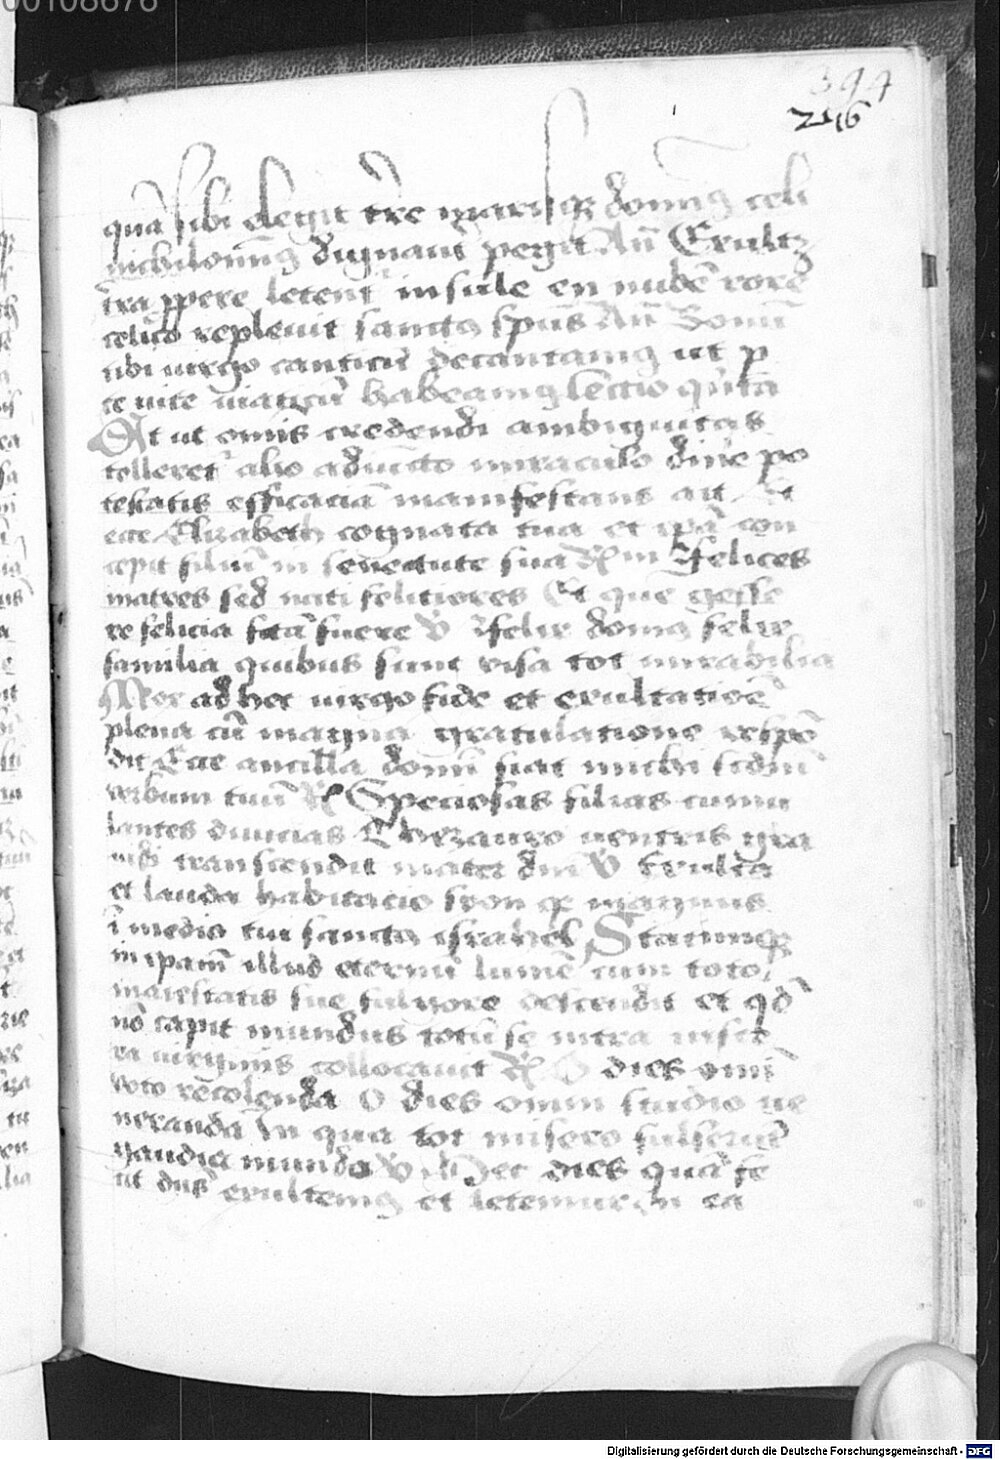 00108676
394
216
quā sibi elegit tr̄re marisqꝫ domūs celi
dignant̄ pegit Añ Exultꝫ
pꝑere letent̄ insule en nubē rorē
celico replevit sancto sp̄us Añ
tibi virgo canticū decantamꝰ ut p
te vite viaticū habeamꝰ lectio q̄nta
At ut omīs credendi ambiguitas
tolleret̄ alio adiuncto miraculo divīe po
testatis efficaciā manifestans ait Et
ecce Elizabeth cognata tua et ip̄a con
cepit filiū in senectute sua R̄ m Felices
matres sed nati felitiores Et que gesse
re felicia fata fuere V̄ Felix domꝰ felix
familia quibus sunt visa tot mirabilia
Mox ad hec virgo fide et exultatiōe
plena cū magna gratulatione respō
dit Ecce ancilla domī fiat michi scdm
verbum tuū R̄ Speciosas filias cumu
lantes divicias thezauro ventris gra
transcendit mater dn̄i V̄ Exulta
et lauda habitacio syon qꝫ magnus
ī medio tui sanctꝰ israhel Statimqꝫ
in ipam illud eternū lumē cum toto
maiestatis sue fulgore descendit et qd̄
nō capit mundus totū se intra visce
ra virginis collocavit R̄ O dies omī
voto recolenda O dies omni studio ve
neranda In qua tot misero fulserūt
gaudia mundo V̄ Hec dies quā fe
cit dn̄s exultemꝰ et letemur in ea
Digitalisierung gefördert durch die Deutsche Forschungsgemeinschaft - DFG